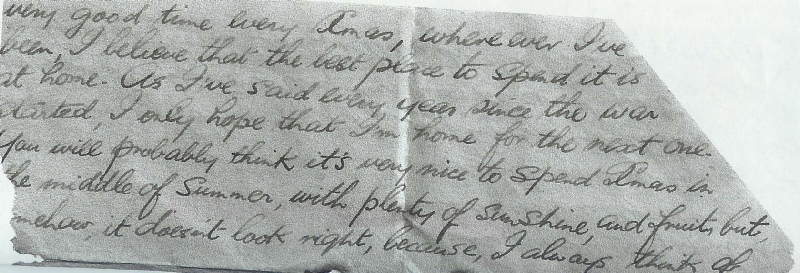 very good time every Xmas, where ever I've
been, I believe that the best place to spend it is
at home. As I've said every year since the war
started, I only hope that I'm home for the next one.
You will probably think it's very nice to spend Xmas in
the middle of Summer, with plenty of sunshine, and fruits but,
mehow, it doesn't look right, because, I always think of